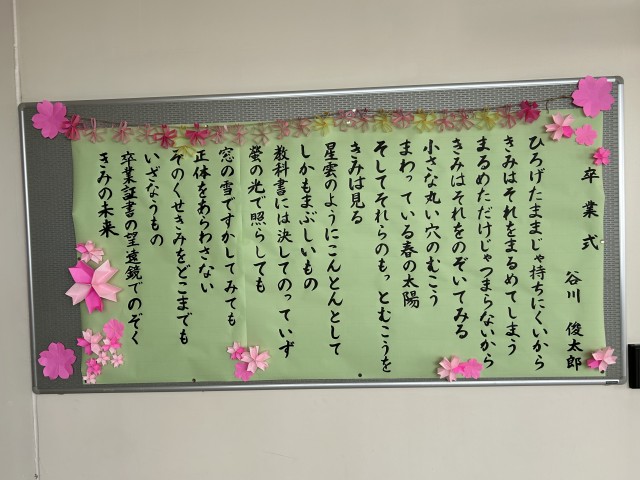 卒業式
谷川 俊太郎
ひろげたままじゃ持ちにくいから
きみはそれをまるめてしまう
まるめただけじゃつまらないから
きみはそれをのぞいてみる
小さな丸い穴のむこう
まわっている春の太陽
そしてそれらのもっとむこうを
きみは見る
星雲のようにこんとんとして
しかもまぶしいもの
教科書には決してのっていず
螢の光で照らしても
窓の雪ですかしてみても
正体をあらわさない
そのくせきみをどこまでも
いざなうもの
卒業証書の望遠鏡でのぞく
きみの未来